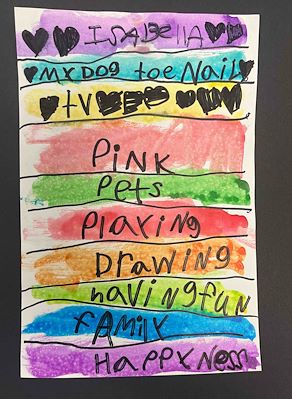 ISABEllA
MY DOG toe NAil
tV
PiNK
Pets
PlaYiNg
DrawiNg
haviNg fuN
fAMilY
HAPPYNess